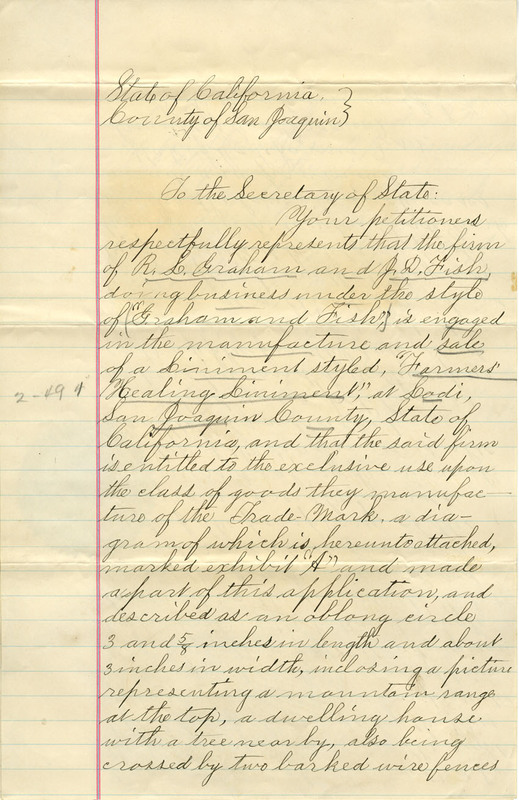 State of California. }
County of San Joaquin }
To the Secretary of State:
Your petitioners
respectfully represents that the firm
of R. L. Graham and J. D. Fish,
doing business under the style
of "Graham and Fish", is engaged
in the manufacture and sale
of a Liniment styled, "Farmers'
Healing Liniment," at Lodi,
2-491
San Joaquin County, State of
California, and that the said firm
is entitled to the exclusive use upon
the class of goods they manufac-
ture of the Trade-Mark, a dia-
gram of which is, hereunto attached,
marked exhibit "A" and made
a part of this application, and
described as an oblong circle
3 and 5/8 inches in length and about
3 inches in width, inclosing a picture
representing a mountain range
at the top, a dwelling house
with a tree near by, also being
crossed by two barked wire fences